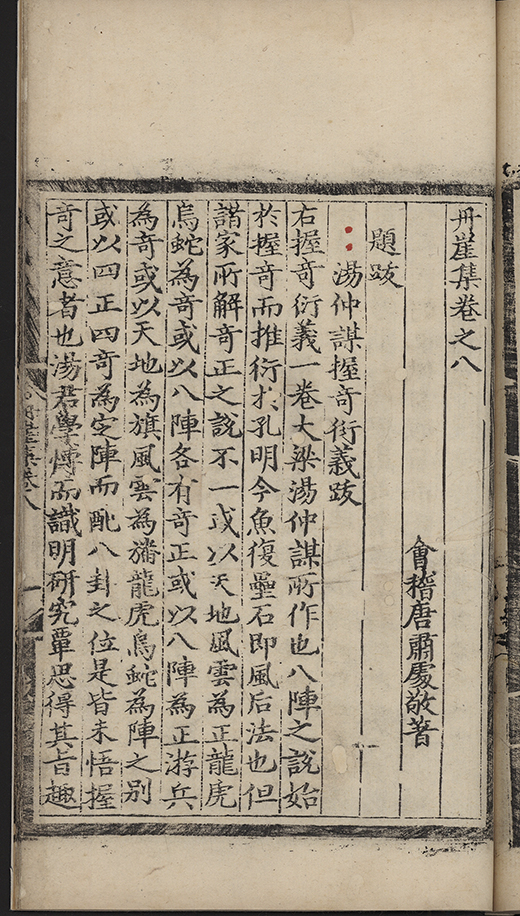 丹崖集卷之八
會稽唐肅處敬著
題跋
湯仲謀握奇衍義跋
右握奇衍義一卷大梁湯仲謀所作也八陣之說始
於握奇而推衍於孔明今魚復壘石即風后法也但
諸家所解奇正之說不一或以天地風雲為正龍虎
鳥蛇為奇或以八陣各有奇正或以八陣為正游兵
為奇或以天地為旗風雲為旛龍虎鳥蛇為陣之別
或以四正四奇為定陣而配八卦之位是皆未悟握
奇之意者也湯君學博而識明研究覃思得其旨趣